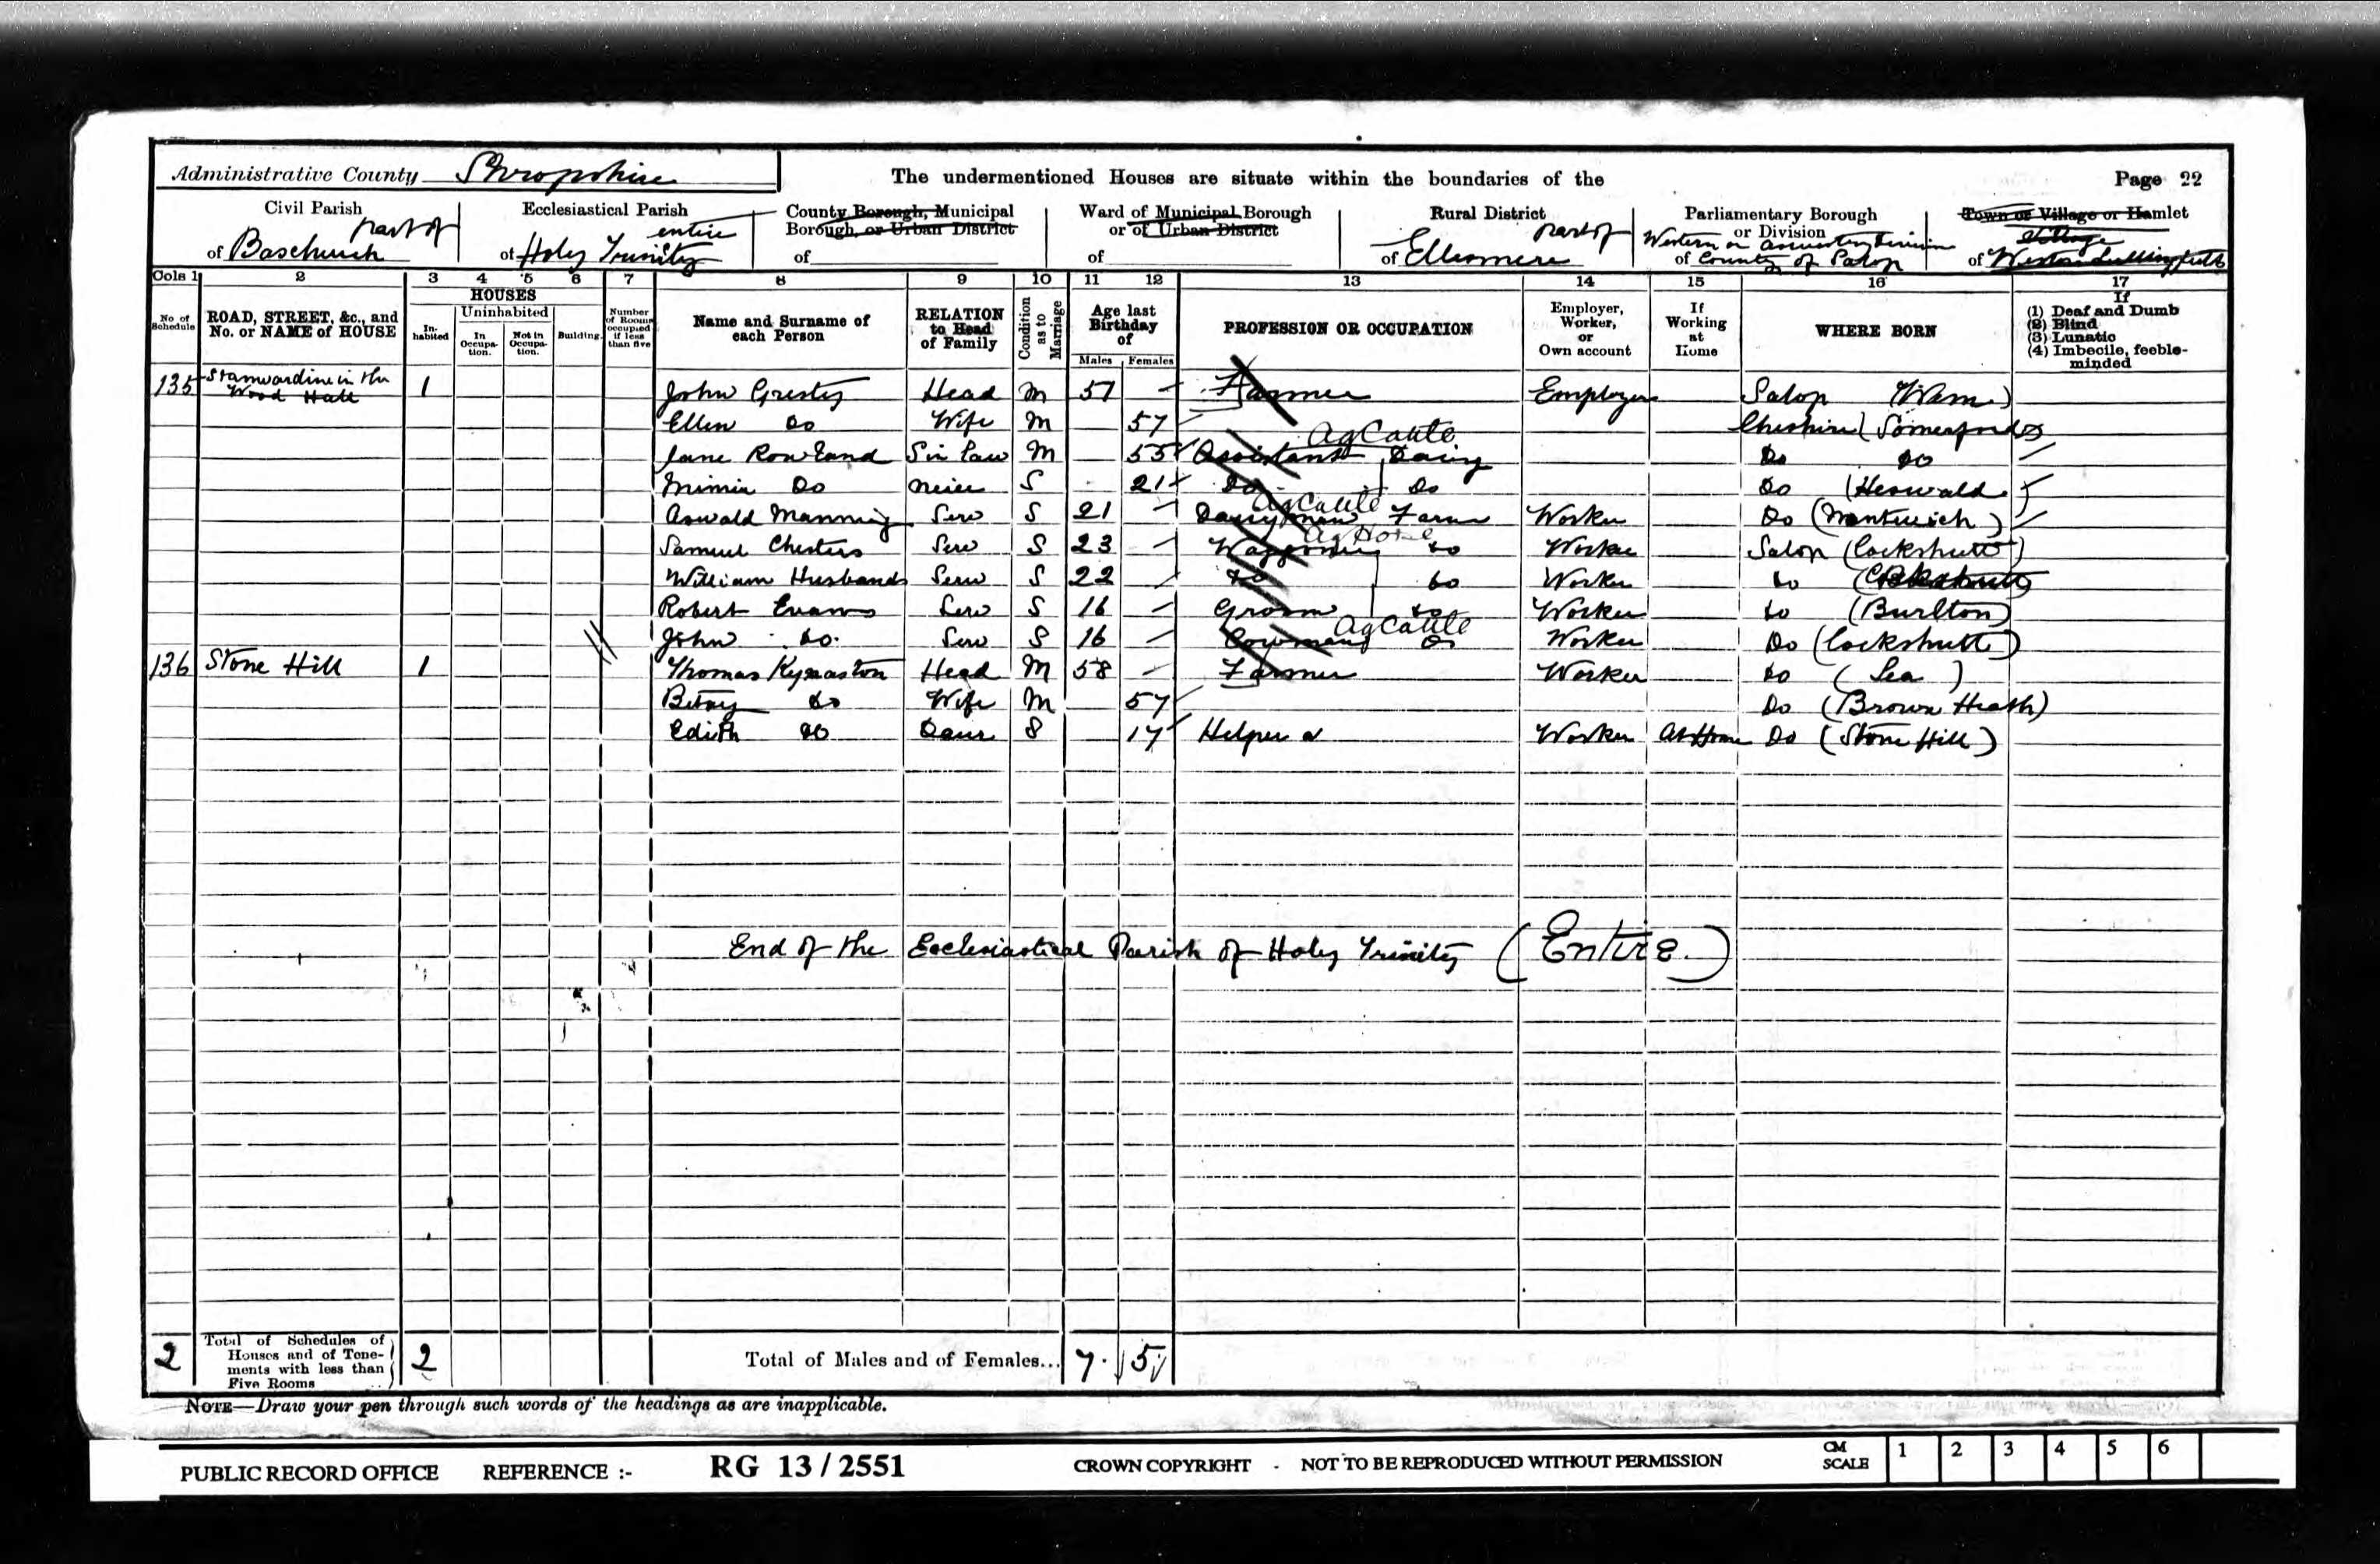 Administrative County Shropshire
The undermentioned Houses are situate within the boundaries of the
Page 22
Civil Parish
part of
of Baschurch
Ecclesiastical Parish
entire
of Holy Trinity
County Borough, Municipal
Borough, or Urban District
of
Ward of Municipal Borough
or of Urban District
of
Rural District
part of
of Ellesmere
Parliamentary Borough
or Division
Western or Oswestry Division
of County of Salop
Town or Village or Hamlet
Village
of Weston Lullingfields
Cols 1 2 3 4 5 6 7 8 9 10 11 12 13 14 15 16 17
No of Schedule
ROAD, STREET, &c., and No. or NAME of HOUSE
HOUSES
In-habited
Uninhabited
In Occupa-tion.
Not in Occupa-tion.
Building.
Number of Rooms occupied if less than five
Name and Surname of each Person
RELATION to Head of Family
Condition as to Marriage
Age last Birthday of
Males Females
PROFESSION OR OCCUPATION
Employer, Worker, or Own account
If Working at Home
WHERE BORN
If
(1) Deaf and Dumb
(2) Blind
(3) Lunatic
(4) Imbecile, feeble-minded
135 Stanwardine in the Wood Hall 1 John Gresty Head M 51 Farmer Employer Salop (Wem)
Ellen Do Wife M 57 Cheshire (Somerford)
AgCattle
Jane Rowland Sis Law M 55 Assistant Dairy Do Do
Minnie Do Niece S 21 Do Do Do
AgCattle
Oswald Manning Serv S 21 Dairyman Farm Worker Do (Nantwich)
AgHorse
Samuel Chesters Serv S 23 Waggoner do Worker Salop (Cockshutt)
William Husbands Serv S 22 do do Worker do (Cockshutt)
Robert Evans Serv S 16 Groom do Worker do (Burlton)
AgCattle
John Do. Serv S 16 Cowman Do Worker Do (Cockshutt)
136 Stone Hill 1 Thomas Kynaston Head M 58 Farmer Worker do (Lea)
Betsy do Wife M 57 Do (Brown Heath)
Edith do Daur S 17 Helper Worker At Home Do (Stone Hill)
End of the Ecclesiastical Parish of Holy Trinity (Entire.)
2 Total of Schedules of Houses and of Tene-ments with less than Five Rooms 2 Total of Males and of Females... 7 5
NOTE—Draw your pen through such words of the headings as are inapplicable.
PUBLIC RECORD OFFICE REFERENCE :- RG 13/2551 CROWN COPYRIGHT - NOT TO BE REPRODUCED WITHOUT PERMISSION CM SCALE 1 2 3 4 5 6